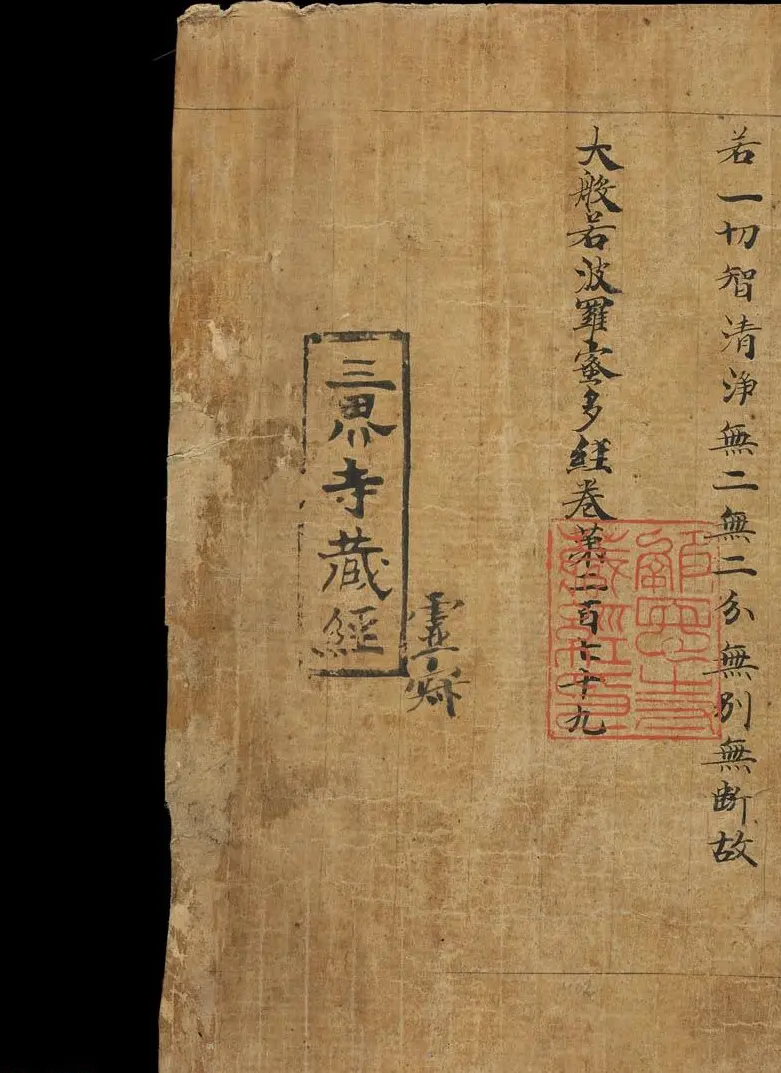 若一切智清淨無二無二分無別無斷故
大般若波羅蜜多經卷第二百六十九
靈寂
三界寺藏經